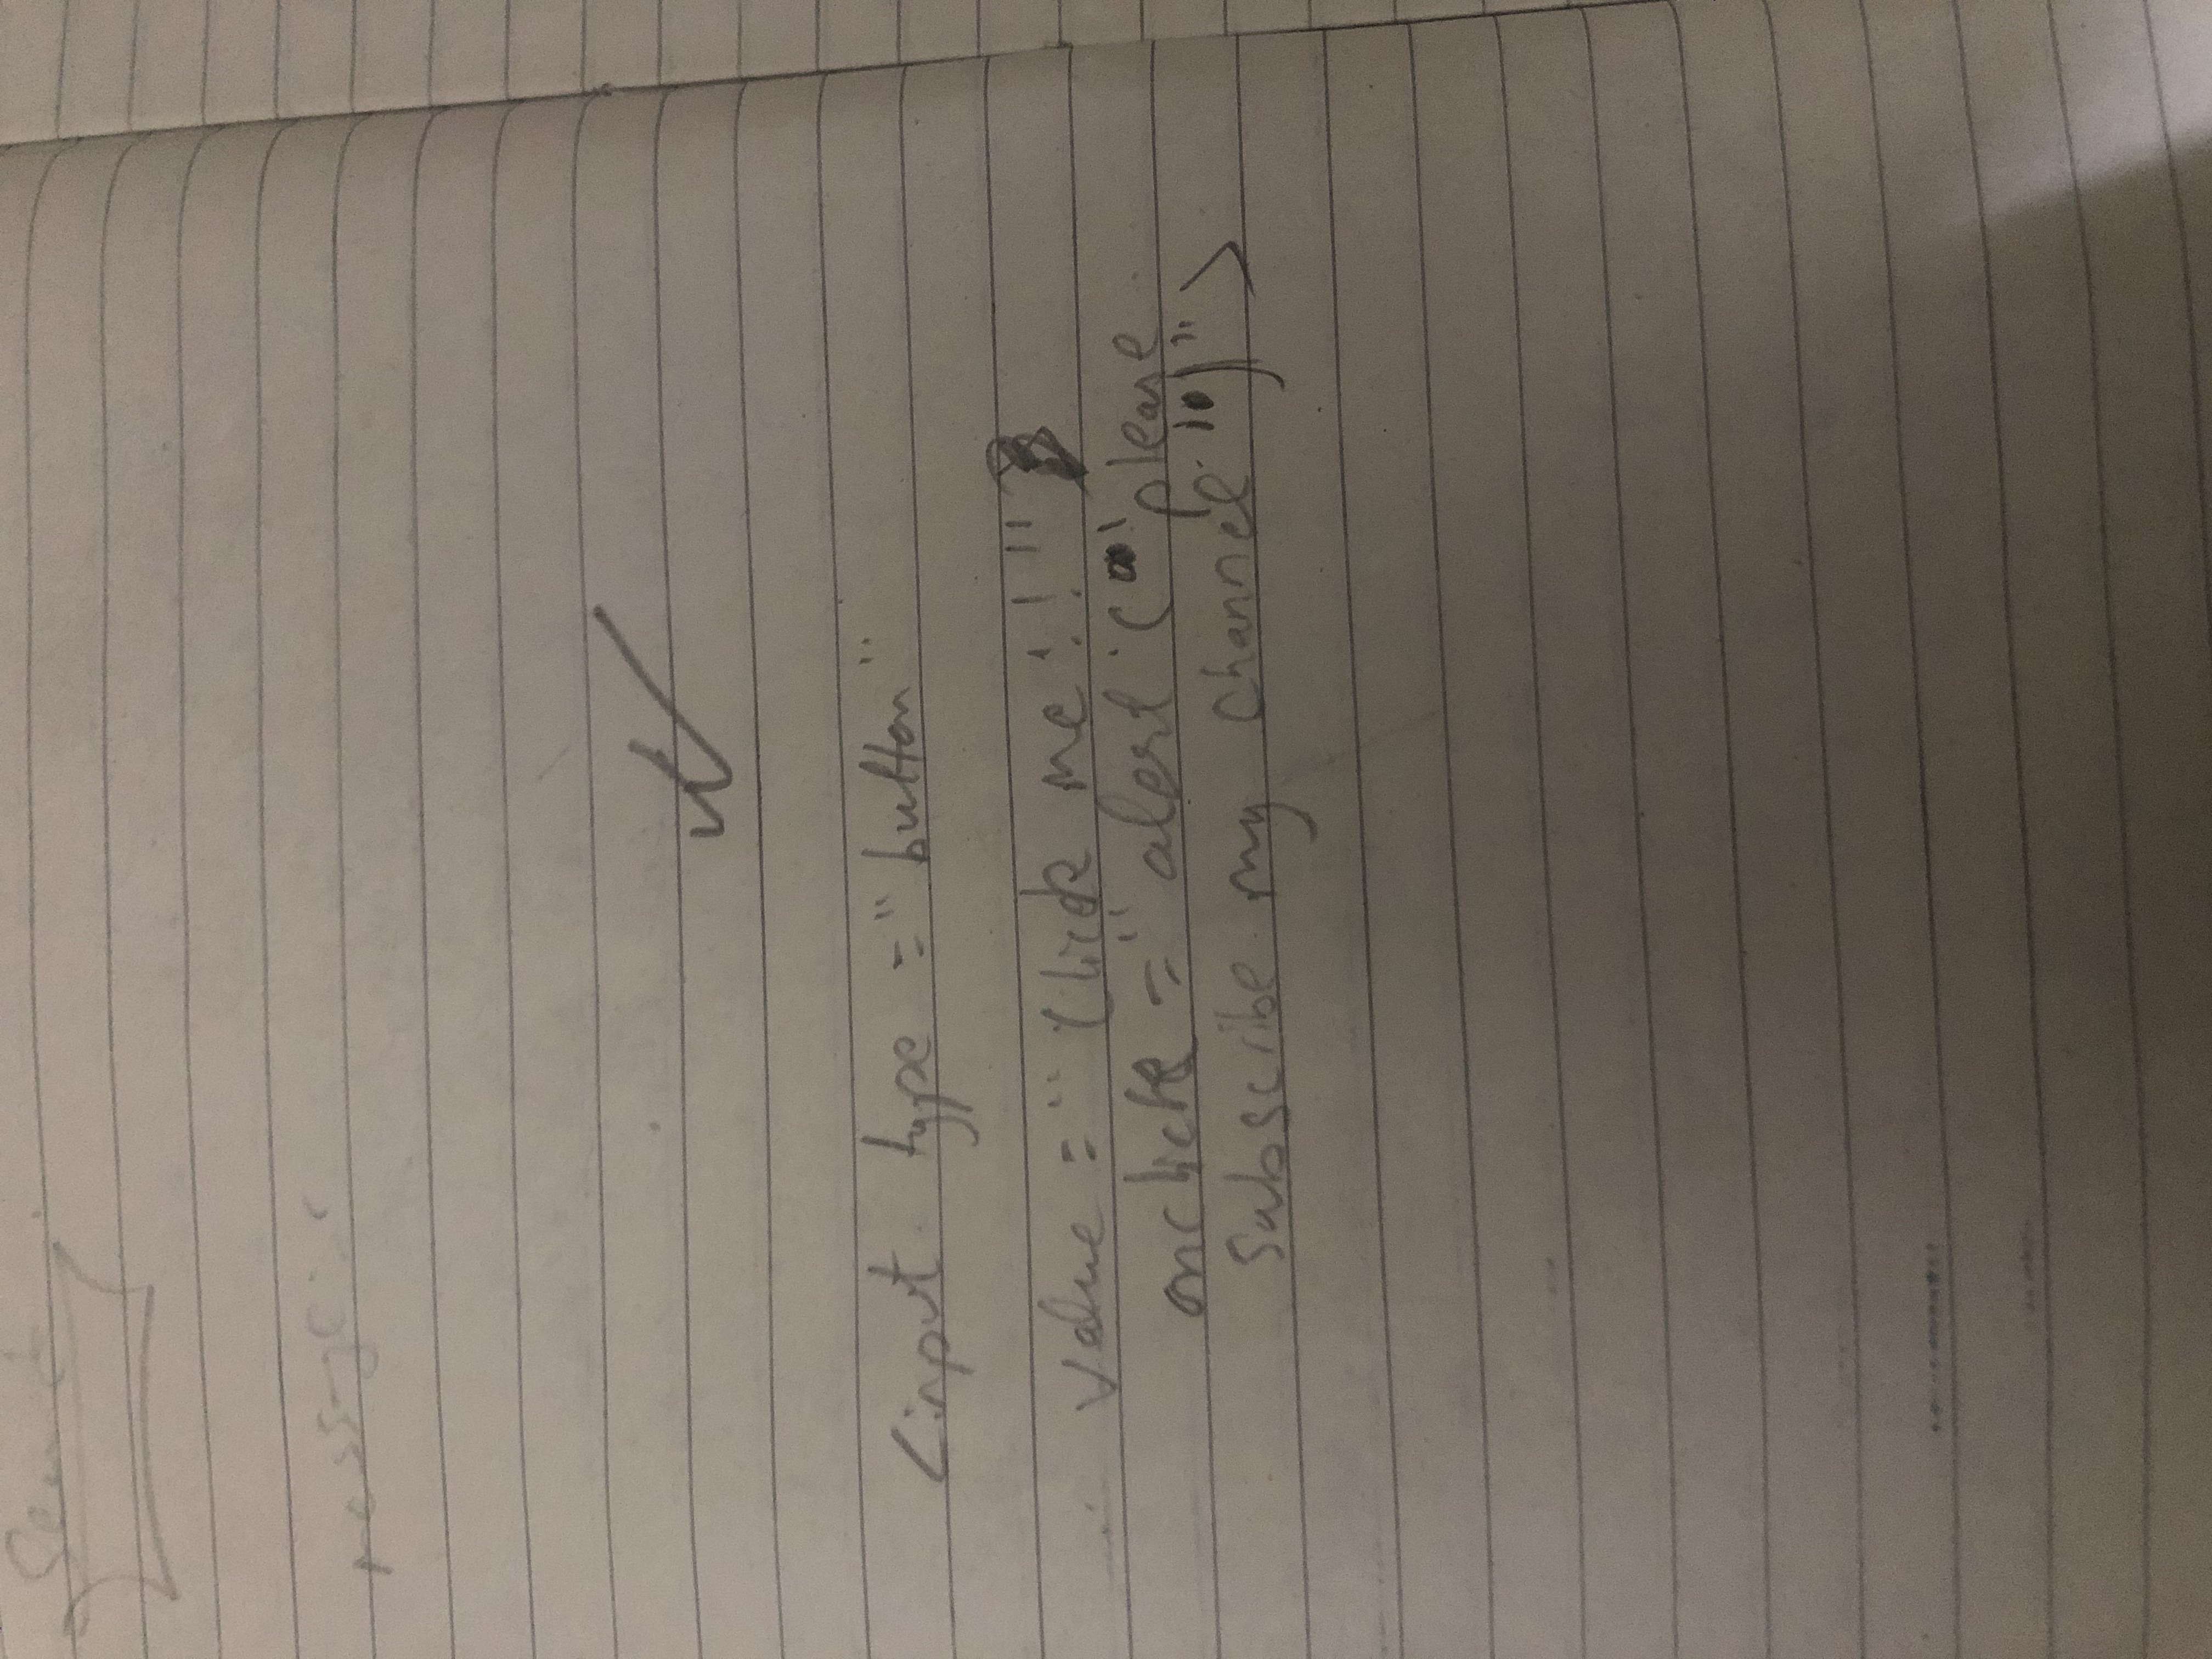 message:
<input type = "button"
value = "Click me!!"
onclick = "alert ('please
Subscribe my channel')">